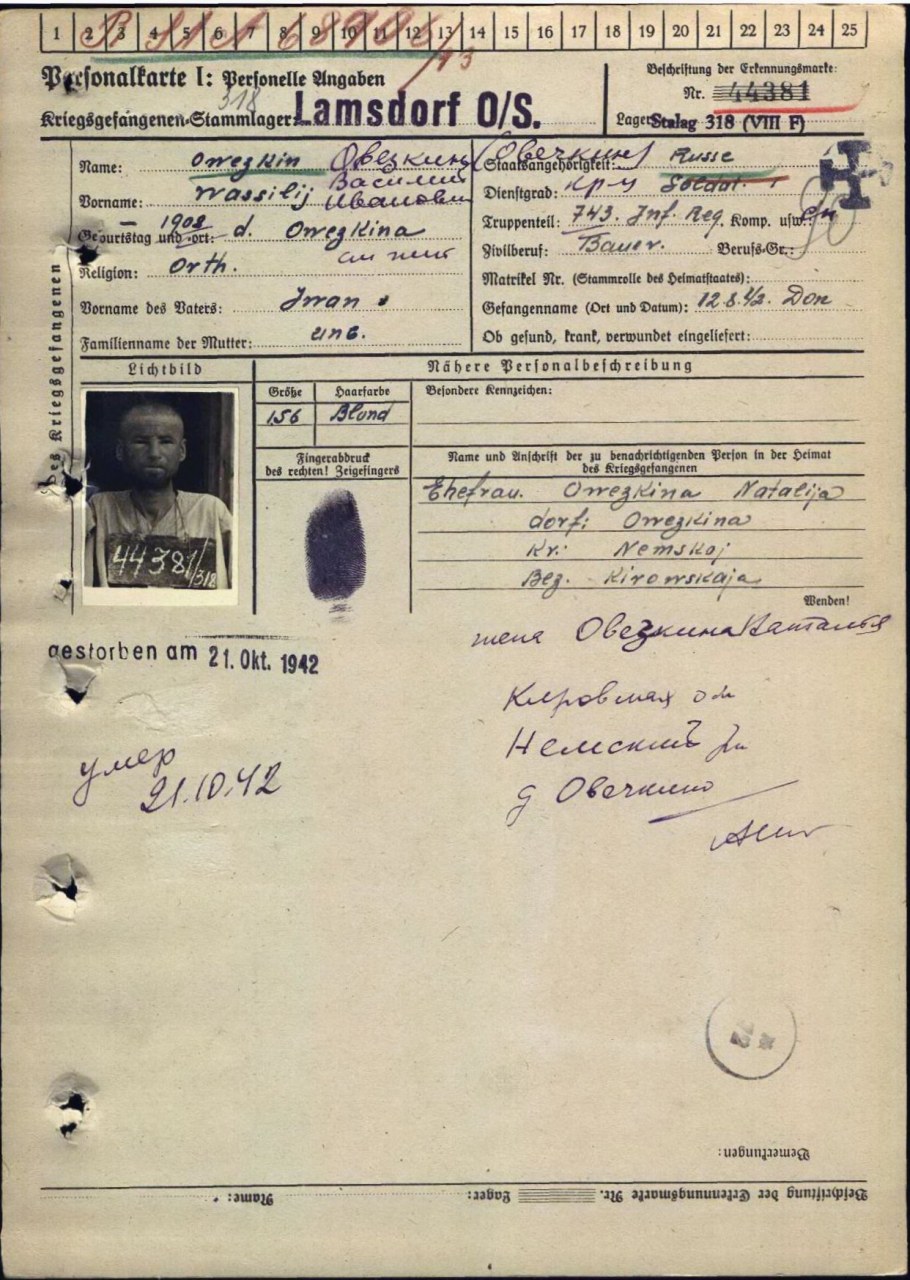 1 2 3 4 5 6 7 8 9 10 11 12 13 14 15 16 17 18 19 20 21 22 23 24 25
Personalkarte I: Personelle Angaben
Beschriftung der Erkennungsmarke:
Nr. 44381
318
Kriegsgefangenen-Stammlager: Lamsdorf O/S.
Lager: Stalag 318 (VIII F)
Name: Owezkin Овезкин (Овечкин)
Василий
Vorname: Wassilij Иванович
Geburtstag und -ort: 1908 d. Owezkina
Religion: Orth.
Vorname des Vaters: Iwan
Familienname der Mutter: unb.
Staatsangehörigkeit: Russe
Dienstgrad: кр-ц Soldat
Truppenteil: 743. Inf. Reg. Komp. usw.:
Zivilberuf: Bauer. Berufs-Gr.:
Matrikel Nr. (Stammrolle des Heimatstaates):
Gefangenname (Ort und Datum): 12.8.42. Don
Ob gesund, krank, verwundet eingeliefert:
des Kriegsgefangenen
Lichtbild
Nähere Personalbeschreibung
Größe Haarfarbe Besondere Kennzeichen:
156 Blond
Fingerabdruck
des rechten! Zeigefingers
Name und Anschrift der zu benachrichtigenden Person in der Heimat
des Kriegsgefangenen
44381/318
Ehefrau. Owezkina Natalija
dorf: Owezkina
Kr.: Nemskoj
Bez. Kirowskaja
Wenden!
жена Овезкина Наталья
gestorben am 21. Okt. 1942
Кировская об
Немский рн
д Овечкино
умер
21.10.42
Bemerkungen:
Beschriftung der Erkennungsmarke Nr. Lager: Name: